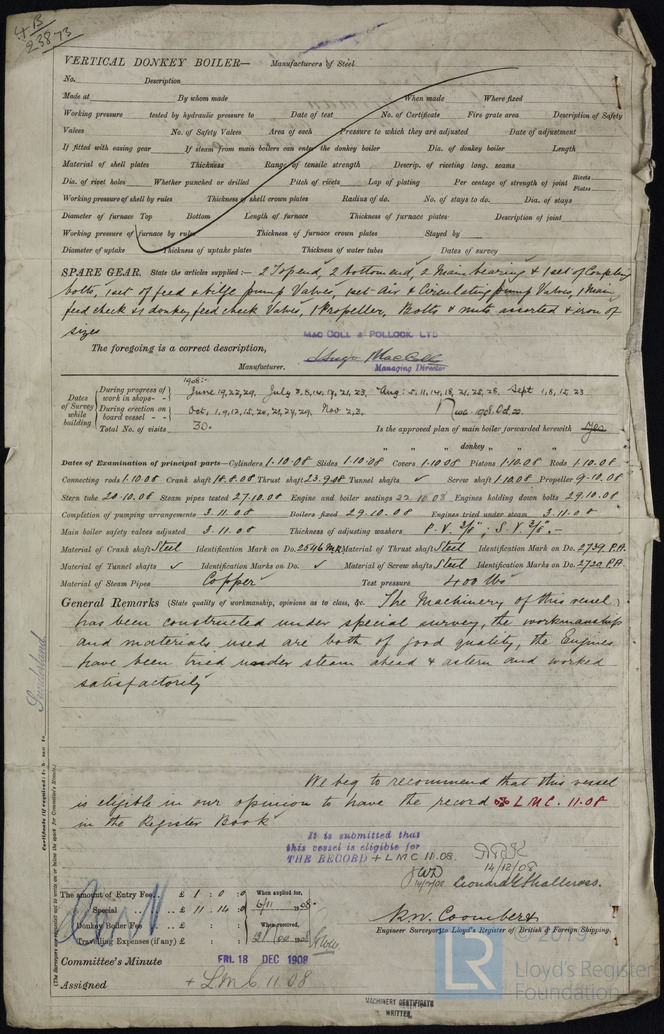 4B
23873
VERTICAL DONKEY BOILER— Manufacturers of Steel
No. Description
Made at By whom made When made Where fixed
Working pressure tested by hydraulic pressure to Date of test No. of Certificate Fire grate area Description of Safety
Valves No. of Safety Valves Area of each Pressure to which they are adjusted Date of adjustment
If fitted with easing gear If steam from main boilers can enter the donkey boiler Dia. of donkey boiler Length
Material of shell plates Thickness Range of tensile strength Descrip. of riveting long. seams
Dia. of rivet holes Whether punched or drilled Pitch of rivets Lap of plating Per centage of strength of joint Rivets Plates
Working pressure of shell by rules Thickness of shell crown plates Radius of do. No. of stays to do. Dia. of stays
Diameter of furnace Top Bottom Length of furnace Thickness of furnace plates Description of joint
Working pressure of furnace by rules Thickness of furnace crown plates Stayed by
Diameter of uptake Thickness of uptake plates Thickness of water tubes Dates of survey
SPARE GEAR. State the articles supplied:— 2 Top end, 2 bottom end, 2 Main bearing & 1 set of Coupling
bolts, 1 set of feed & bilge pump Valves, 1 set Air & Circulating pump Valves, 1 Main
feed check & 1 donkey feed check Valves, 1 Propeller, Bolts & nuts assorted & iron of
sizes
MAC COLL & POLLOCK, LTD
The foregoing is a correct description,
Hugo MacColl
Manufacturer. Managing Director
Dates of Survey while building
1908:-
During progress of work in shops - - June 19, 22, 29, July 3, 8, 14, 17, 21, 23, Aug: 5, 11, 14, 18, 21, 25, 28, Sept 1, 8, 15, 23
During erection on board vessel - - Oct, 1, 9, 12, 15, 20, 21, 27, 29, Nov 2, 3.
Total No. of visits 30. Is the approved plan of main boiler forwarded herewith Yes
" " " donkey " " "
Dates of Examination of principal parts—Cylinders 1.10.08 Slides 1.10.08 Covers 1.10.08 Pistons 1.10.08 Rods 1.10.08
Connecting rods 1.10.08 Crank shaft 18.8.08 Thrust shaft 23.9.08 Tunnel shafts ✓ Screw shaft 1.10.08 Propeller 9.10.08
Stern tube 20.10.08 Steam pipes tested 27.10.08 Engine and boiler seatings 22.10.08 Engines holding down bolts 29.10.08
Completion of pumping arrangements 3.11.08 Boilers fixed 29.10.08 Engines tried under steam 3.11.08
Main boiler safety valves adjusted 3.11.08 Thickness of adjusting washers P.V. 3/8"; S.V. 3/8".-
Material of Crank shaft Steel Identification Mark on Do. 2546 MR Material of Thrust shaft Steel Identification Mark on Do. 2739 P.A.
Material of Tunnel shafts ✓ Identification Marks on Do. ✓ Material of Screw shafts Steel Identification Marks on Do. 2720 P.A
Material of Steam Pipes Copper Test pressure 400 lbs
General Remarks (State quality of workmanship, opinions as to class, &c. The Machinery of this vessel
has been constructed under special survey, the workmanship
and materials used are both of good quality, the Engines
have been tried under steam ahead & astern and worked
satisfactorily
We beg to recommend that this vessel
is eligible in our opinion to have the record + LMC. 11.08
in the Register Book
It is submitted that
this vessel is eligible for
THE RECORD + LMC 11.08.
14/12/08
Sunderland
Certificate (if required) to be sent to
(The Surveyors are requested not to write on or below the space for Committee's Minute.)
The amount of Entry Fee.. £ 1 : 0 : 0 When applied for,
Special .. £ 11 : 14 : 0 6/11 1908
Donkey Boiler Fee .. £ : : When received,
Travelling Expenses (if any) £ : :
R.W. Coomber
Engineer Surveyors to Lloyd's Register of British & Foreign Shipping.
Committee's Minute FRI. 18 DEC 1908
Assigned + LMC 11.08
MACHINERY CERTIFICATE
WRITTEN
LR
© 2019
Lloyd's Register
Foundation